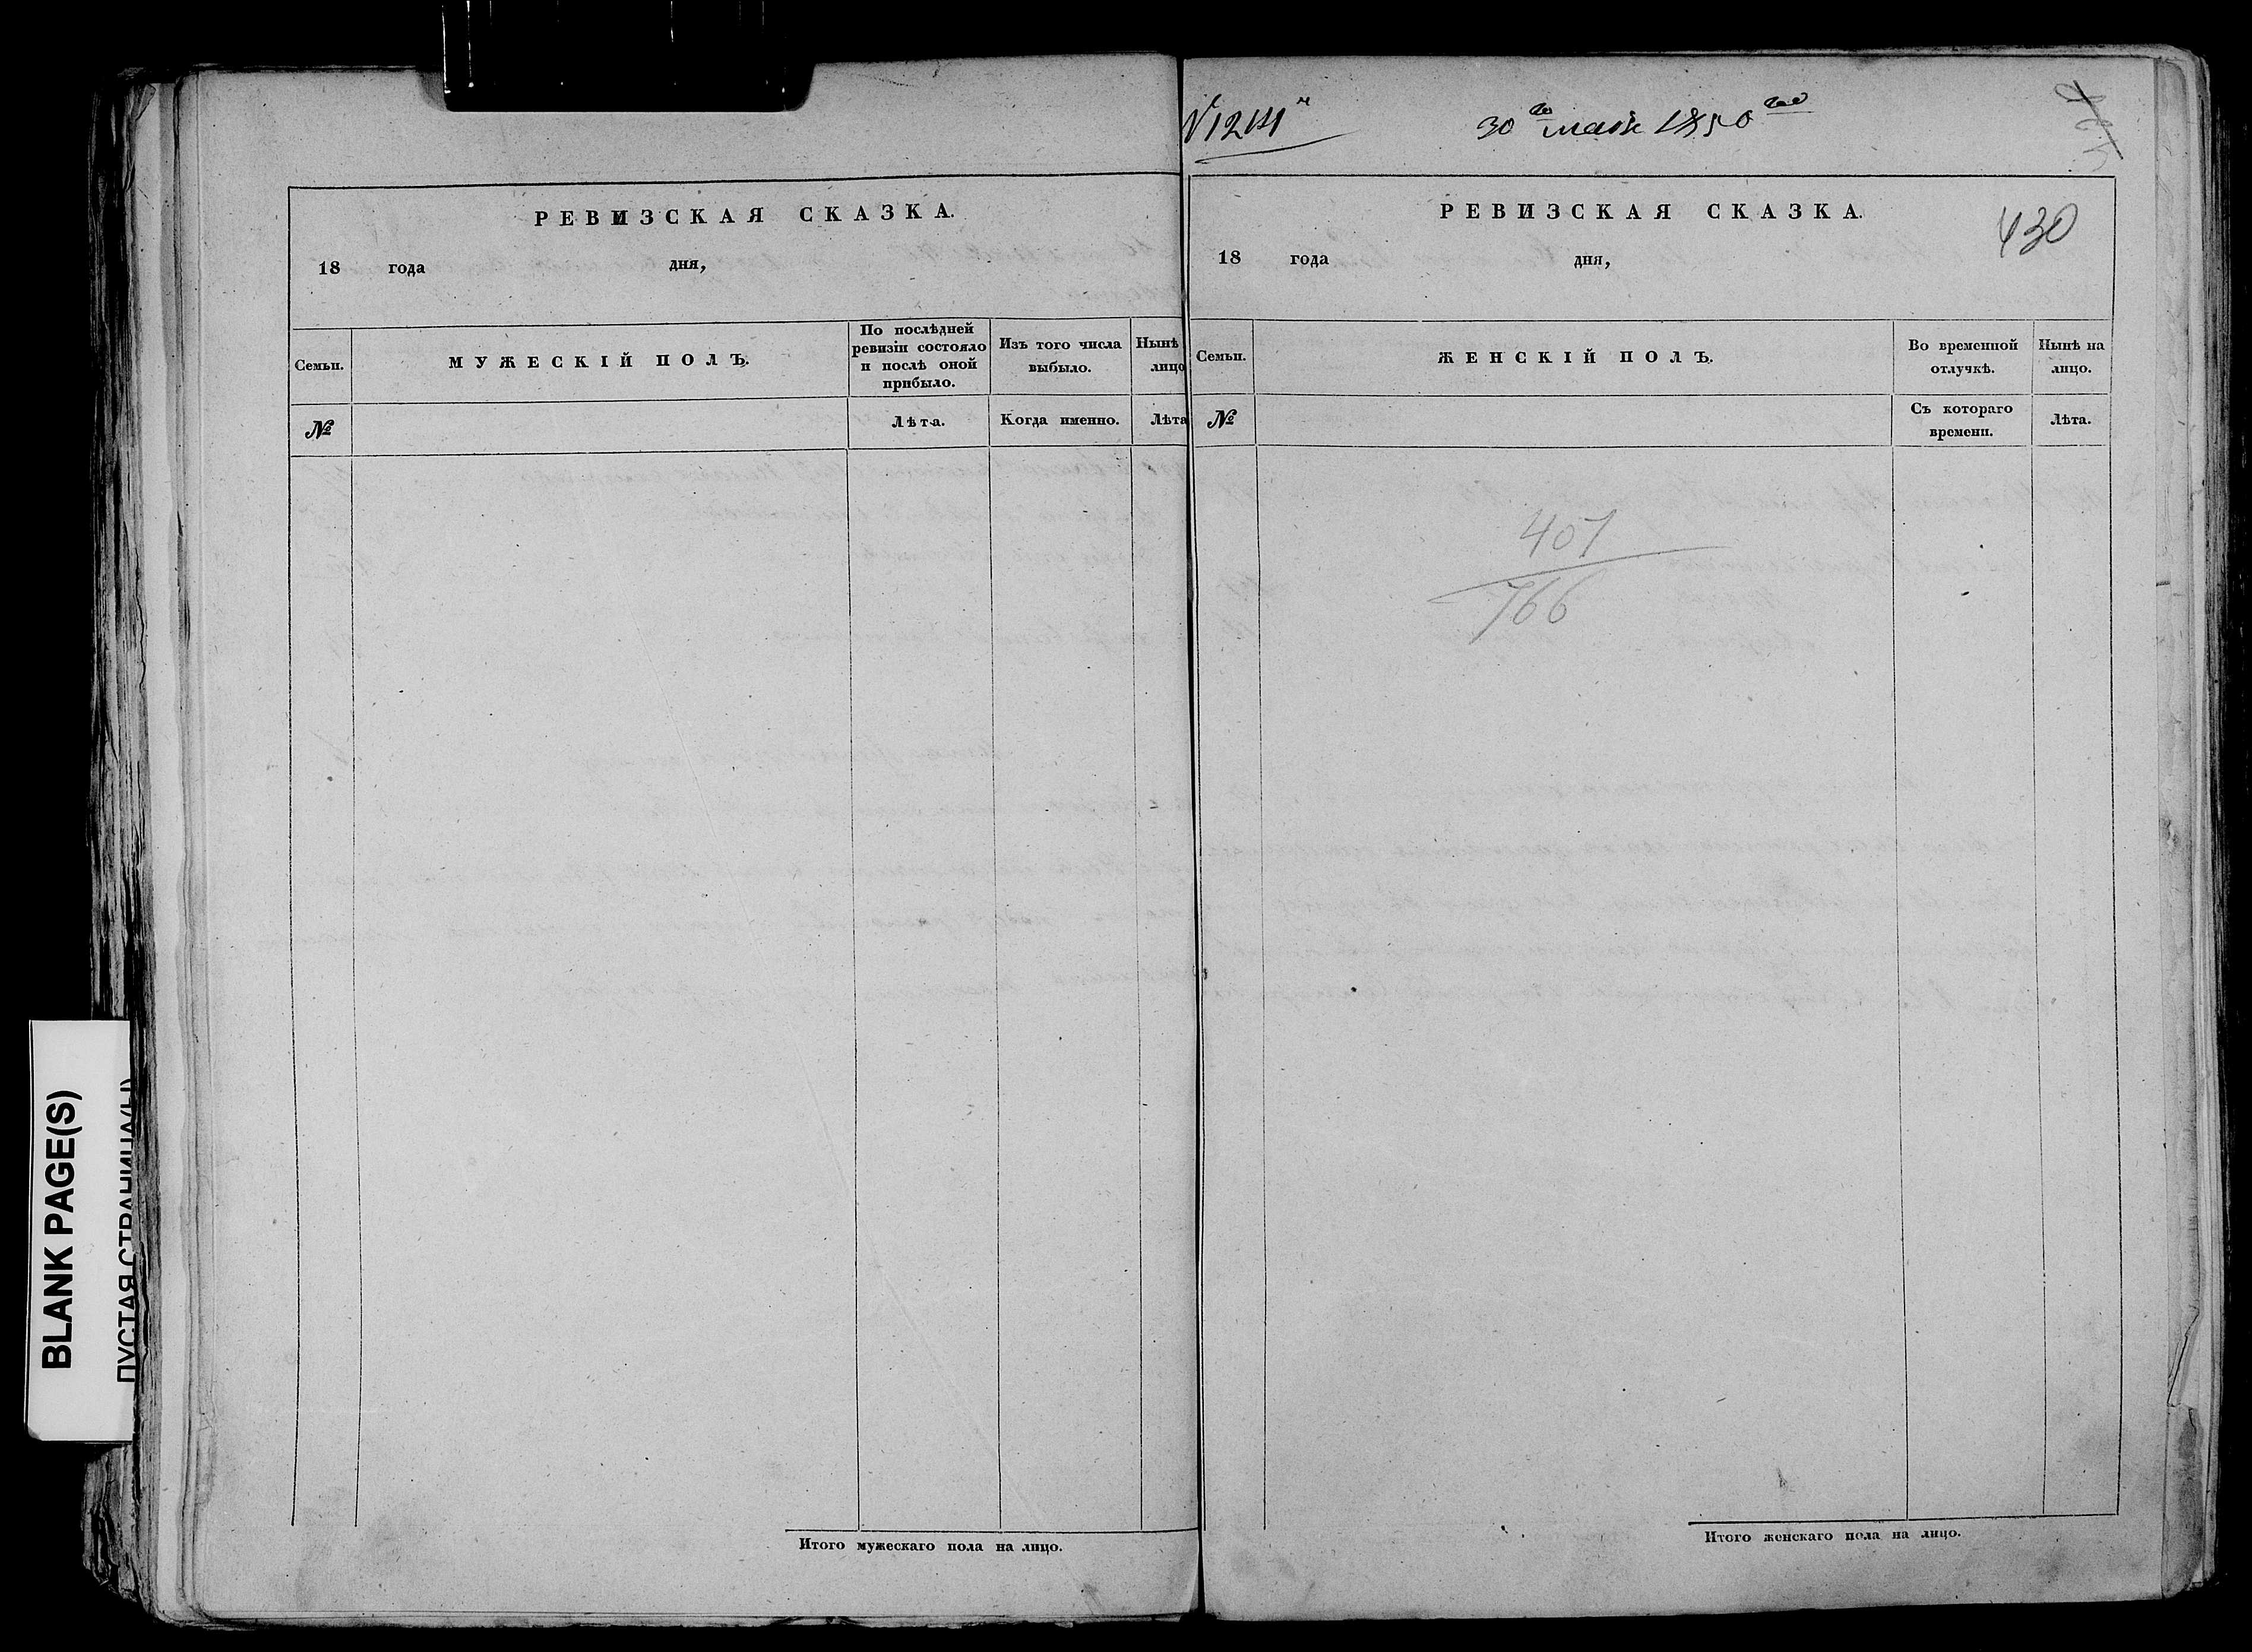 РЕВИЗСКАЯ СКАЗКА.
18 года дня,
Семьи.
МУЖЕСКІЙ ПОЛЪ.
По послѣдней
ревизіи состояло
и послѣ оной
прибыло.
Изъ того числа
выбыло.
Нынѣ
лицо
№
Лѣта.
Когда именно.
Лѣта
Итого мужескаго пола на лицо.
30го маія 1850го
РЕВИЗСКАЯ СКАЗКА.
430
18 года дня,
Семьи.
ЖЕНСКІЙ ПОЛЪ.
Во временной
отлучкѣ.
Нынѣ на
лицо.
№
Съ котораго
времени.
Лѣта.
407
766
Итого женскаго пола на лицо.
BLANK PAGE(S)
ПУСТАЯ СТРАНИЦА/Ы